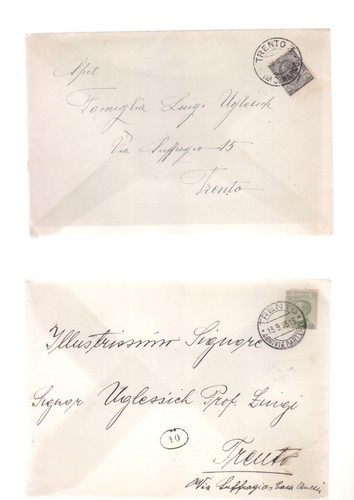 TRENTO 3
Spet.
Famiglia Luigi Uglesich
Via Suffragio 15
Trento
TRENTO
13.9
Illustrissimo Signore
Signor Uglessich Prof. Luigi
10
Trento
Via Suffragio Casa